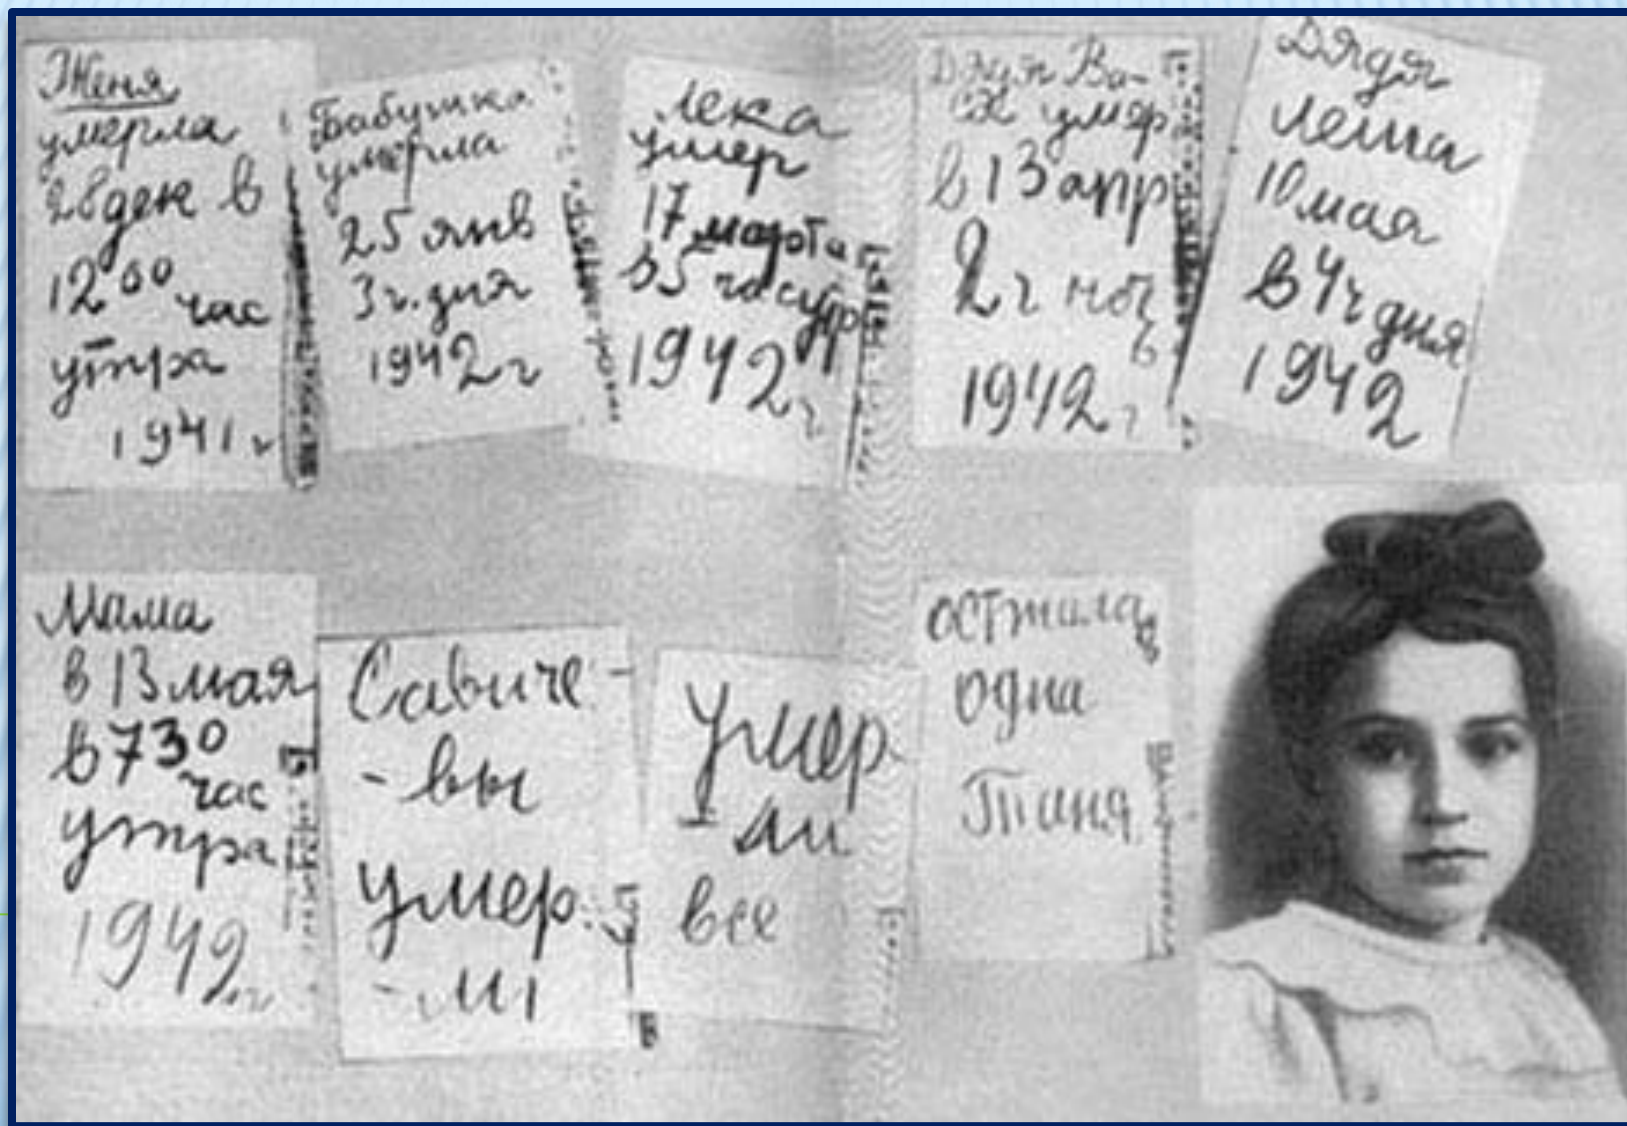 Женя
умерла
28 дек в
12⁰⁰ час
утра
1941 г
Бабушка
умерла
25 янв
3 ч. дня
1942 г
Лека
умер
17 марта
в 5 час утр
1942 г
Дядя Ва-
ся умер
в 13 апр
2 ч ноч
ь
1942 г
Дядя
Леша
10 мая
в 4 ч дня
1942
Мама
в 13 мая
в 7 30
час
утра
1942 г
Савиче-
-вы
умер
-ли
Умер
-ли
все
осталась
одна
Таня